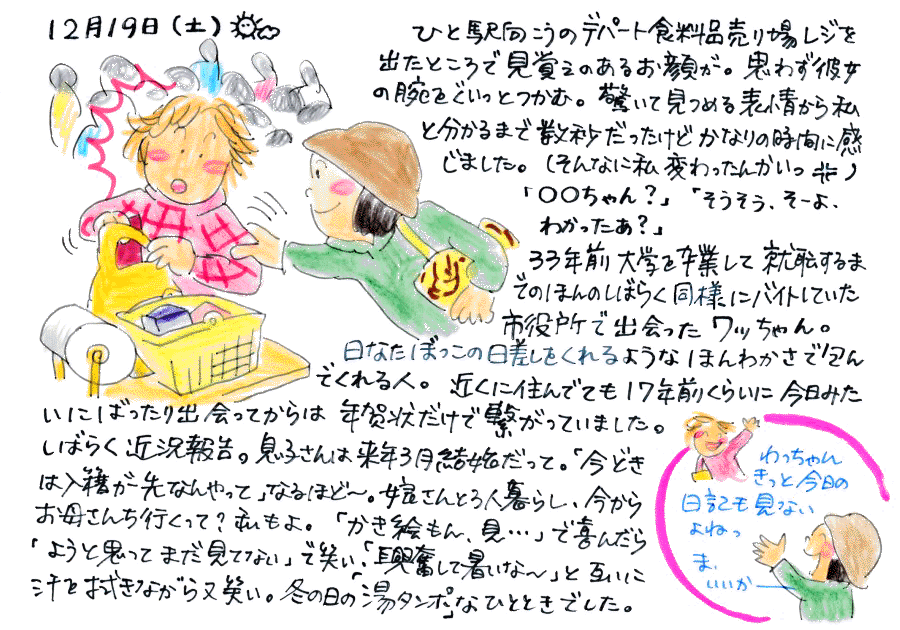 12月19日(土)
ひと駅向こうのデパート食料品売り場レジを
出たところで見覚えのあるお顔が。思わず彼女
の腕をぐいっとつかむ。驚いて見つめる表情から私
と分かるまで数秒だったけどかなりの時間に感
じました。(そんなに私変わったんかいっ)
「〇〇ちゃん?」「そうそう、そーよ、
わかったあ?」
33年前大学を卒業して就職するま
でのほんのしばらく同様にバイトしていた
市役所で出会ったワッちゃん。
日なたぼっこの日差しをくれるようなほんわかさで包ん
でくれる人。近くに住んでても17年前くらいに今日みた
いにばったり出会ってからは年賀状だけで繋がっていました。
しばらく近況報告。息子さんは来年3月結婚だって。「今どき
は入籍が先なんやって」なるほど〜。娘さんと3人暮らし、今から
お母さんち行くって?私もよ。「かき絵もん、見…」で喜んだら
「ようと思ってまだ見てない」で笑い、「興奮して暑いな〜」と互いに
汗を拭きながら又笑い。冬の日の「湯タンポ」なひとときでした。
わっちゃん
きっと今日の
日記も見ない
よねっ
ま、
いいか